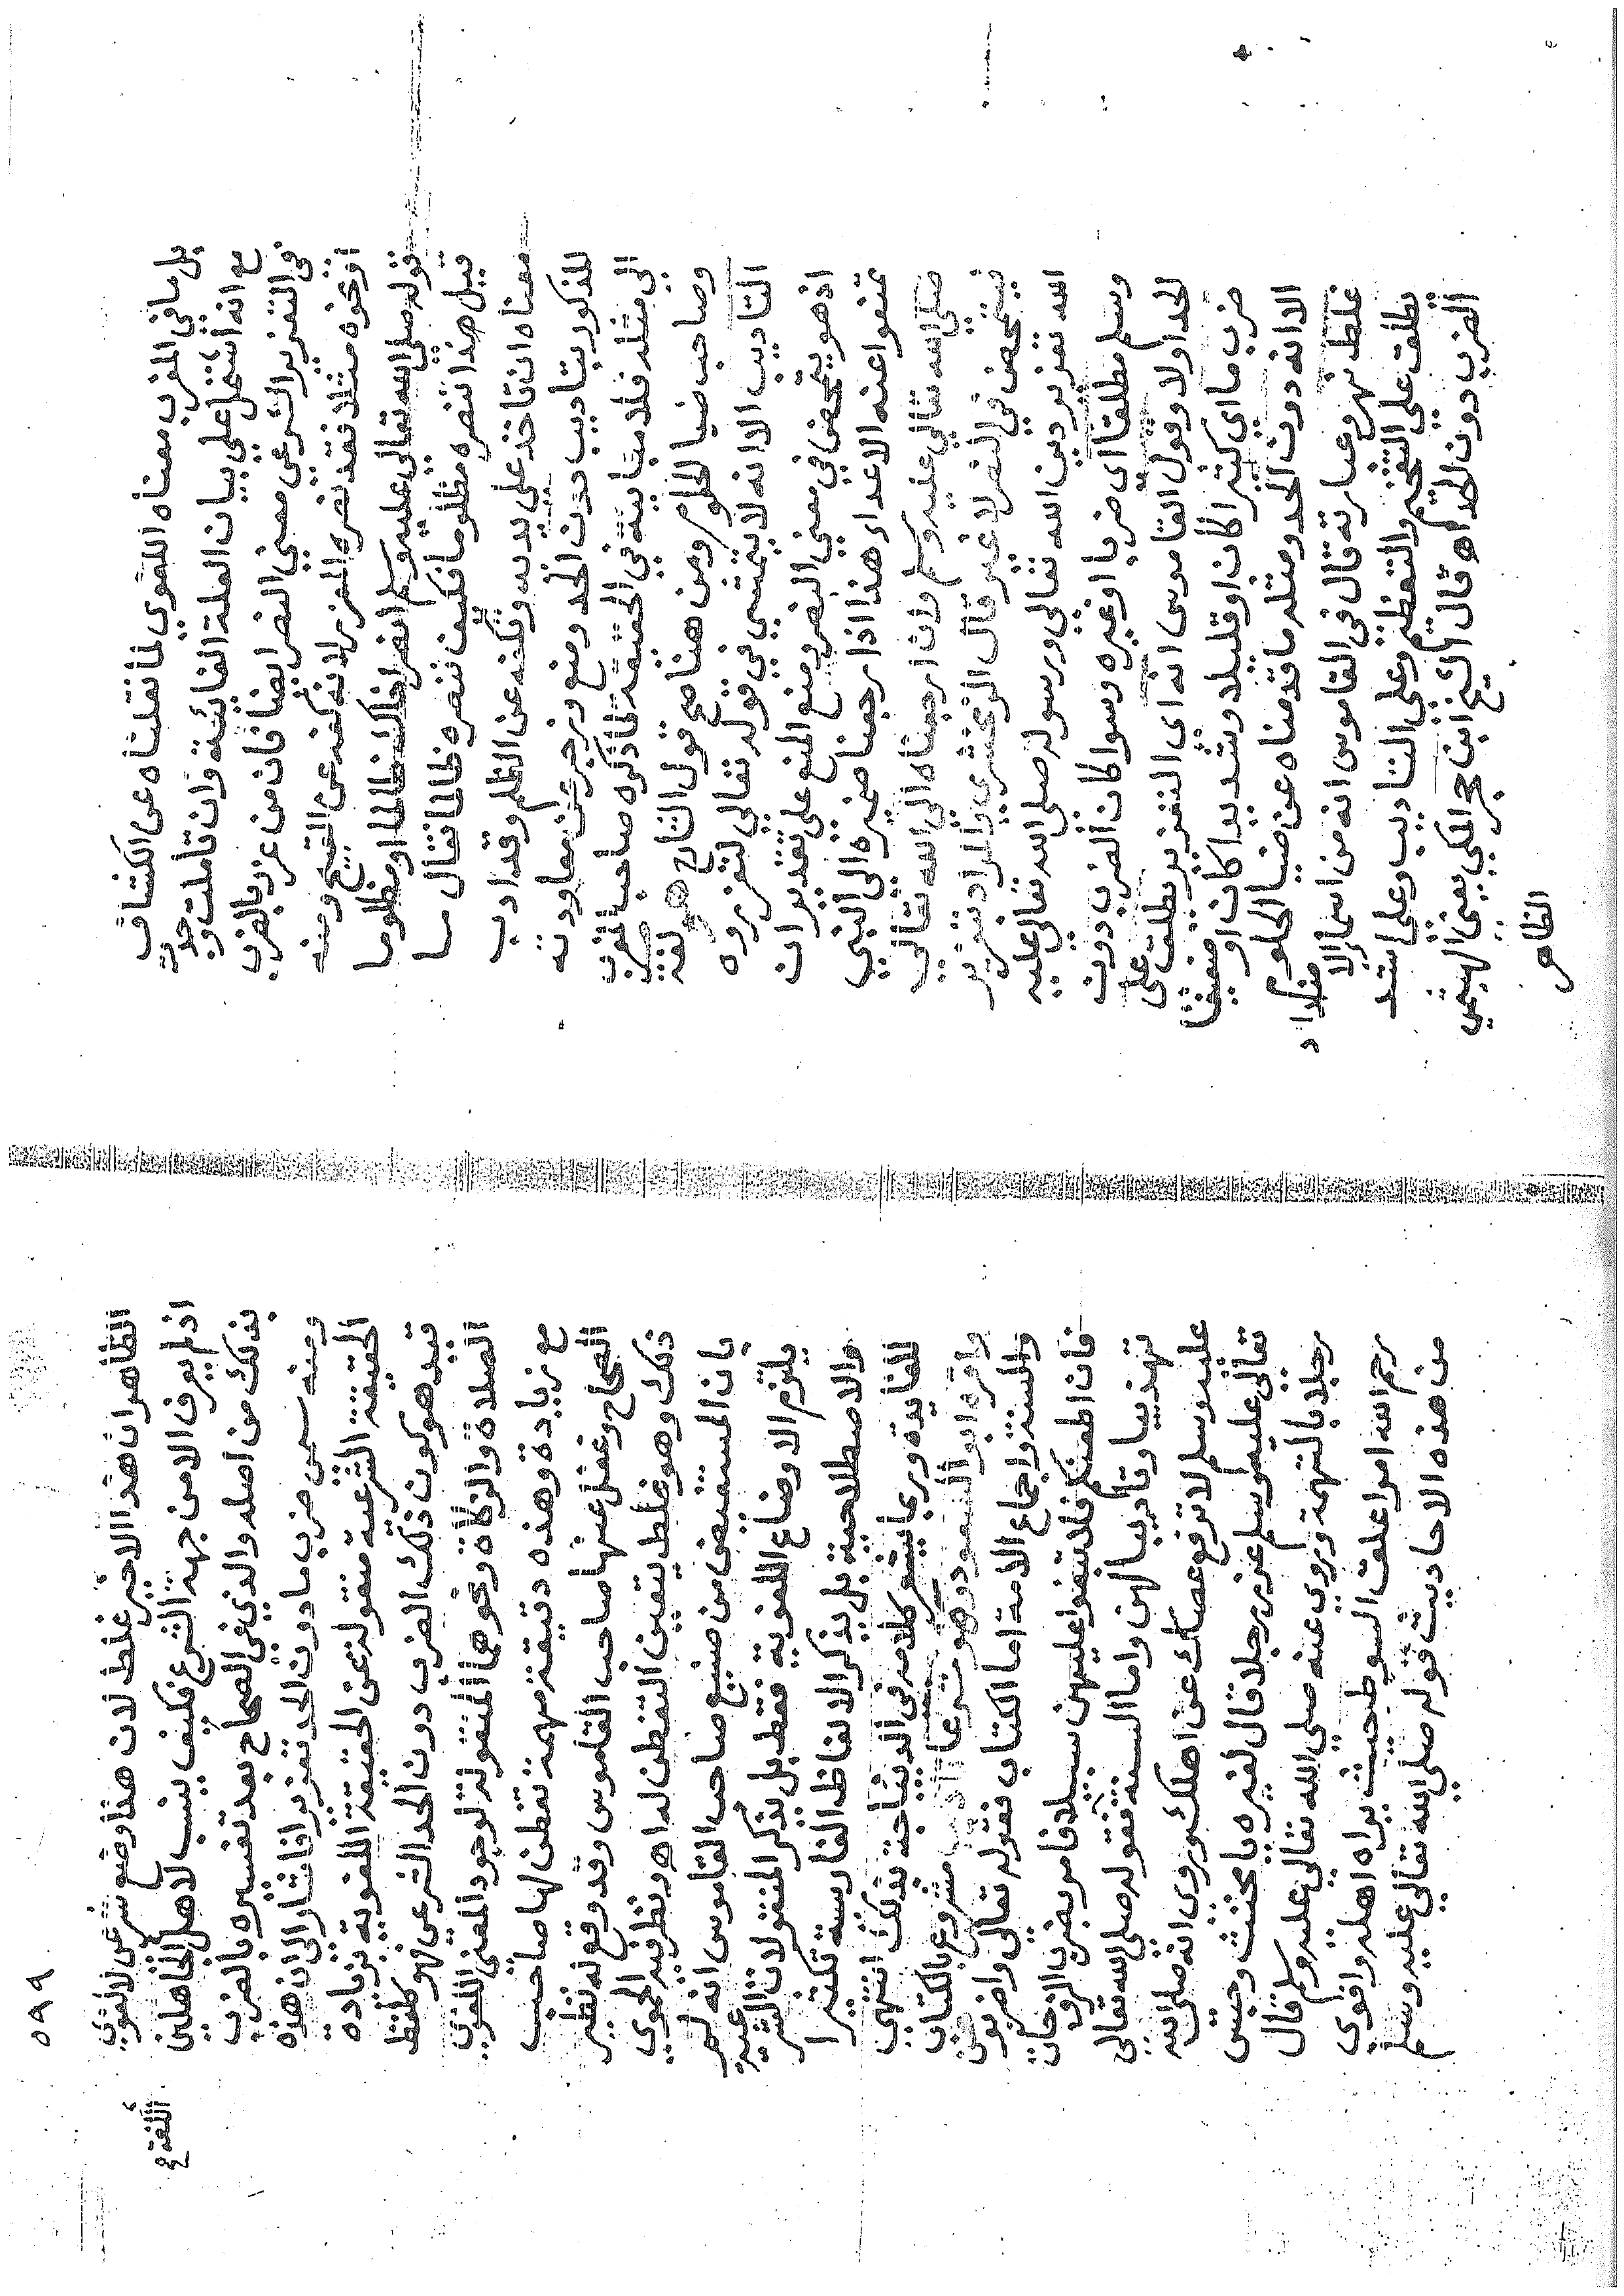 بل ما في المغرب معناه اللغوي لما نقلناه عن الكشاف
مع انه اشتمل علي بيان العلة الغائية وان تأملت وجدت
في التعزير الشرعي معني النصر ايضا فان من عزر بالضرب
او نحوه مثلا فقد نصره المعزر لانه كفه عن القبيح ومنه
قوله صلي الله تعالي عليه وسلم انصر اخاك ظالما او مظلوما
قيل هذا ننصره مظلوما فكيف ننصره ظالما فقال ما
معناه ان تاخذ علي يديه وتكفه عن الظلم وقد ادب
المذكور بتاديب دون الحد ومنع وزجر عن معاودته
الي مثله فلا مباينة في الحقيقة لما ذكره صاحب المغرب
وصاحب ضيا الحلوم ومن هنا صح قول الشارح هو لغة
التاديب الا انه لا يتمشي في قوله تعالي لتعزروه
اذ هو يتمحض في معني النصر ومنع المنع علي تقدير ان
تمنعوا عنه الاعداء هذا اذا رجعنا ضميره الي النبي
صلي الله تعالي عليه وسلم وان ارجعناه الي الله تعالي
فيتمحض في النصر لا غير قال الزمخشري والمراد بتعزير
الله تعزير دين الله تعالي ورسوله صلي الله تعالي عليه
وسلم مطلقا اى ضربا او غيره وسوا كان الضرب دون
الحد اولا وقول القاموس انه اى التعزير يطلق علي
ضرب ما اى كثيرا كان او قليلا وشديدا كان او ضعيفا
الا انه دون الحد ومثله ما قدمناه عن ضيا الحلوم
غلط نهر وعبارته قال في القاموس انه من اسما الاضداد
يطلق علي التفخيم والتعظيم وعلي التاديب وعلي اشد
الضرب دون الحد اه قال الشيخ ابن حجر المكي يعني الهيتمي
الظاهر
٥٩٩
الظاهر ان هذا الاخير غلط لان هذا وضع شرعي لا لغوي
اذ لم يعرف الا من جهة الشرع فكيف ينسب لاهل اللغة الجاهلين
اللغة صح
بذلك من اصله والذي في الصحاح بعد تفسيره بالضرب
ومنه سمى ضرب ما دون الحد تعزيرا فاشار الي ان هذه
الحقيقة الشرعية منقولة عن الحقيقة اللغوية بزيادة
قيد هو كون ذلك الضرب دون الحد الشرعي فهو كلفظ
الصلاة والزكاة ونحوهما المنقولة لوجود المعني اللغوي
مع زيادة وهذه دقيقة مهمة تفطن لها صاحب
الصحاح وغفل عنها صاحب القاموس وقد وقع له نظير
ذلك وهو غلط يتعين التفطن له اه ونظر فيه الحموي
بان المستفيض من صنيع صاحب القاموس انه لم
يلتزم الاوضاع اللغوية فقط بل يذكر المنقولات الشرعية
والاصطلاحية بل يذكر الالفاظ الفارسية تكثيرا
للفايدة وربما يشعر كلامه في الديباجة بذلك انتهي
واقره ابو السعود وهو شرعا تاديب مشروع بالكتاب
والسنة واجماع الامة اما الكتاب فقوله تعالي واضربوهن
فان اطعنكم فلا تبغوا عليهن سبيلا فامر بضرب الزوجات
تهذيبا وتأديبا لهن واما السنة فقوله صلي الله تعالي
عليه وسلم لا ترفع عصاك عن اهلك وروى انه صلي الله
تعالي عليه وسلم عزر رجلا قال لغيره يا مخنث وحبس
رجلا بالتهمة ويروي عنه صلي الله تعالي عليه وسلم قال
رحم الله امرا علق السوط حيث يراه اهله واقوي
من هذه الاحاديث قوله صلي الله تعالي عليه وسلم